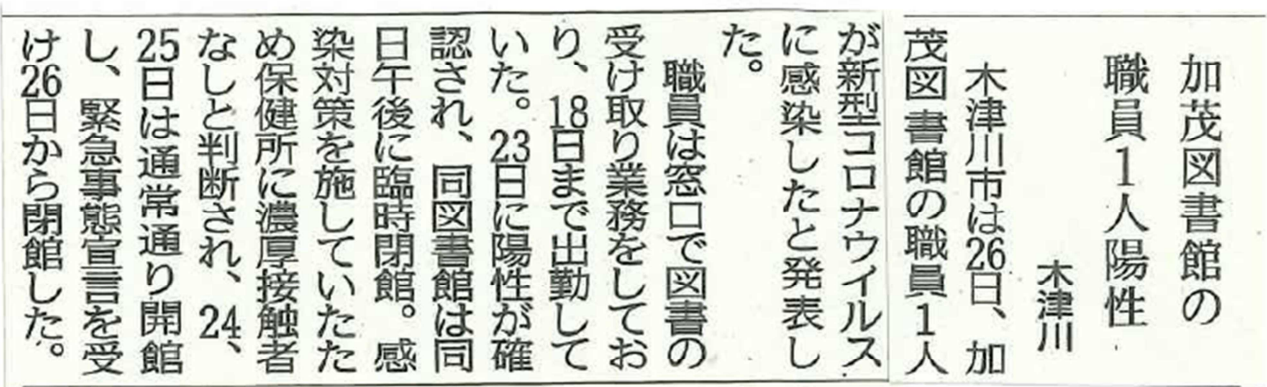 加茂図書館の
職員1人陽性
木津川
木津川市は26日、加
茂図書館の職員1人
が新型コロナウイルス
に感染したと発表し
た。
職員は窓口で図書の
受け取り業務をしてお
り、18日まで出勤して
いた。23日に陽性が確
認され、同図書館は同
日午後に臨時閉館。感
染対策を施していたた
め保健所に濃厚接触者
なしと判断され、24、
25日は通常通り開館
し、緊急事態宣言を受
け26日から閉館した。